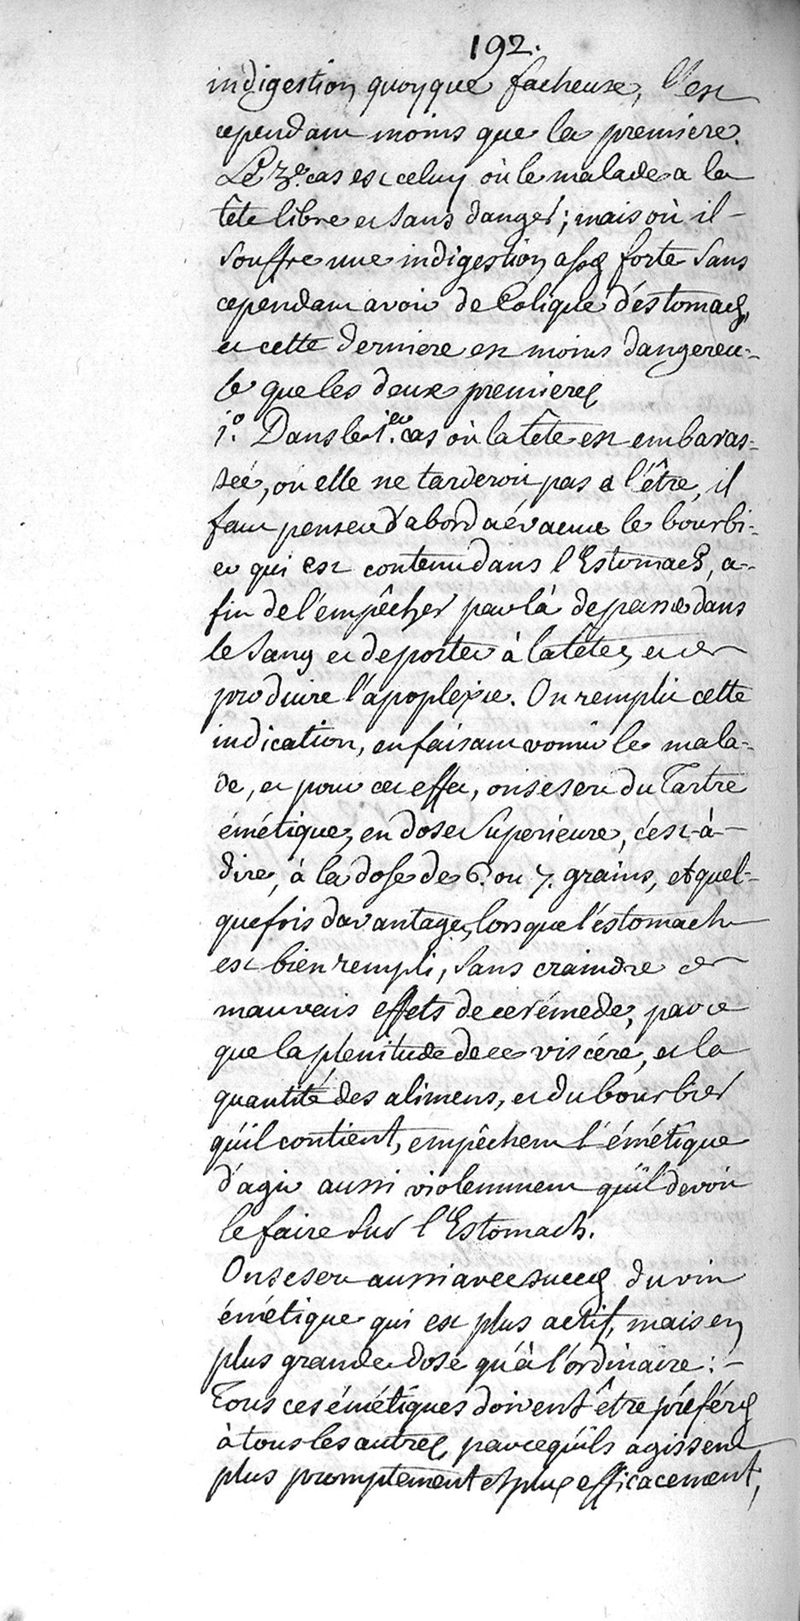 192.
indigestion quoyque facheuse, l'est
cependant moins que la premiere.
Le 3e. cas est celuy où le malade a la
tête libre et sans danger; mais où il
souffre une indigestion assez forte sans
cependant avoir de Colique d'éstomach,
et cette derniere est moins dangereu-
se que les deux premieres
1.° Dans le 1.er cas où la tête est embaras-
sée, où elle ne tarderoit pas a l'être, il
faut penser d'abord a évacuer le bourbi-
er qui est contenu dans l'Estomach, a-
fin de l'empêcher par là de passer dans
le sang et de porter à la tête, et de
produire l'apoplexie. On remplit cette
indication, en faisant vomir le mala-
de, et pour cet effet, on se sert du Tartre
émétique, en dose Superieure, c'est-à-
dire, à la dose de 6. ou 7. grains, et quel-
quefois davantage, lorsque l'éstomach
est bien rempli, sans craindre de
mauvais effets de ce rémede, parce
que la plenitude de ce viscére, et la
quantité des alimens, et du bourbier
qu'il contient, empêchent l'émétique
d'agir aussi violemment qu'il devoit
le faire sur l'Estomach.
On se sert aussi avec succès du vin
émétique qui est plus actif, mais en
plus grande dose qu'à l'ordinaire:
Tous ces émétiques doivent être préférés
à tous les autres, parcequ'ils agissent
plus promptement et plus efficacement,